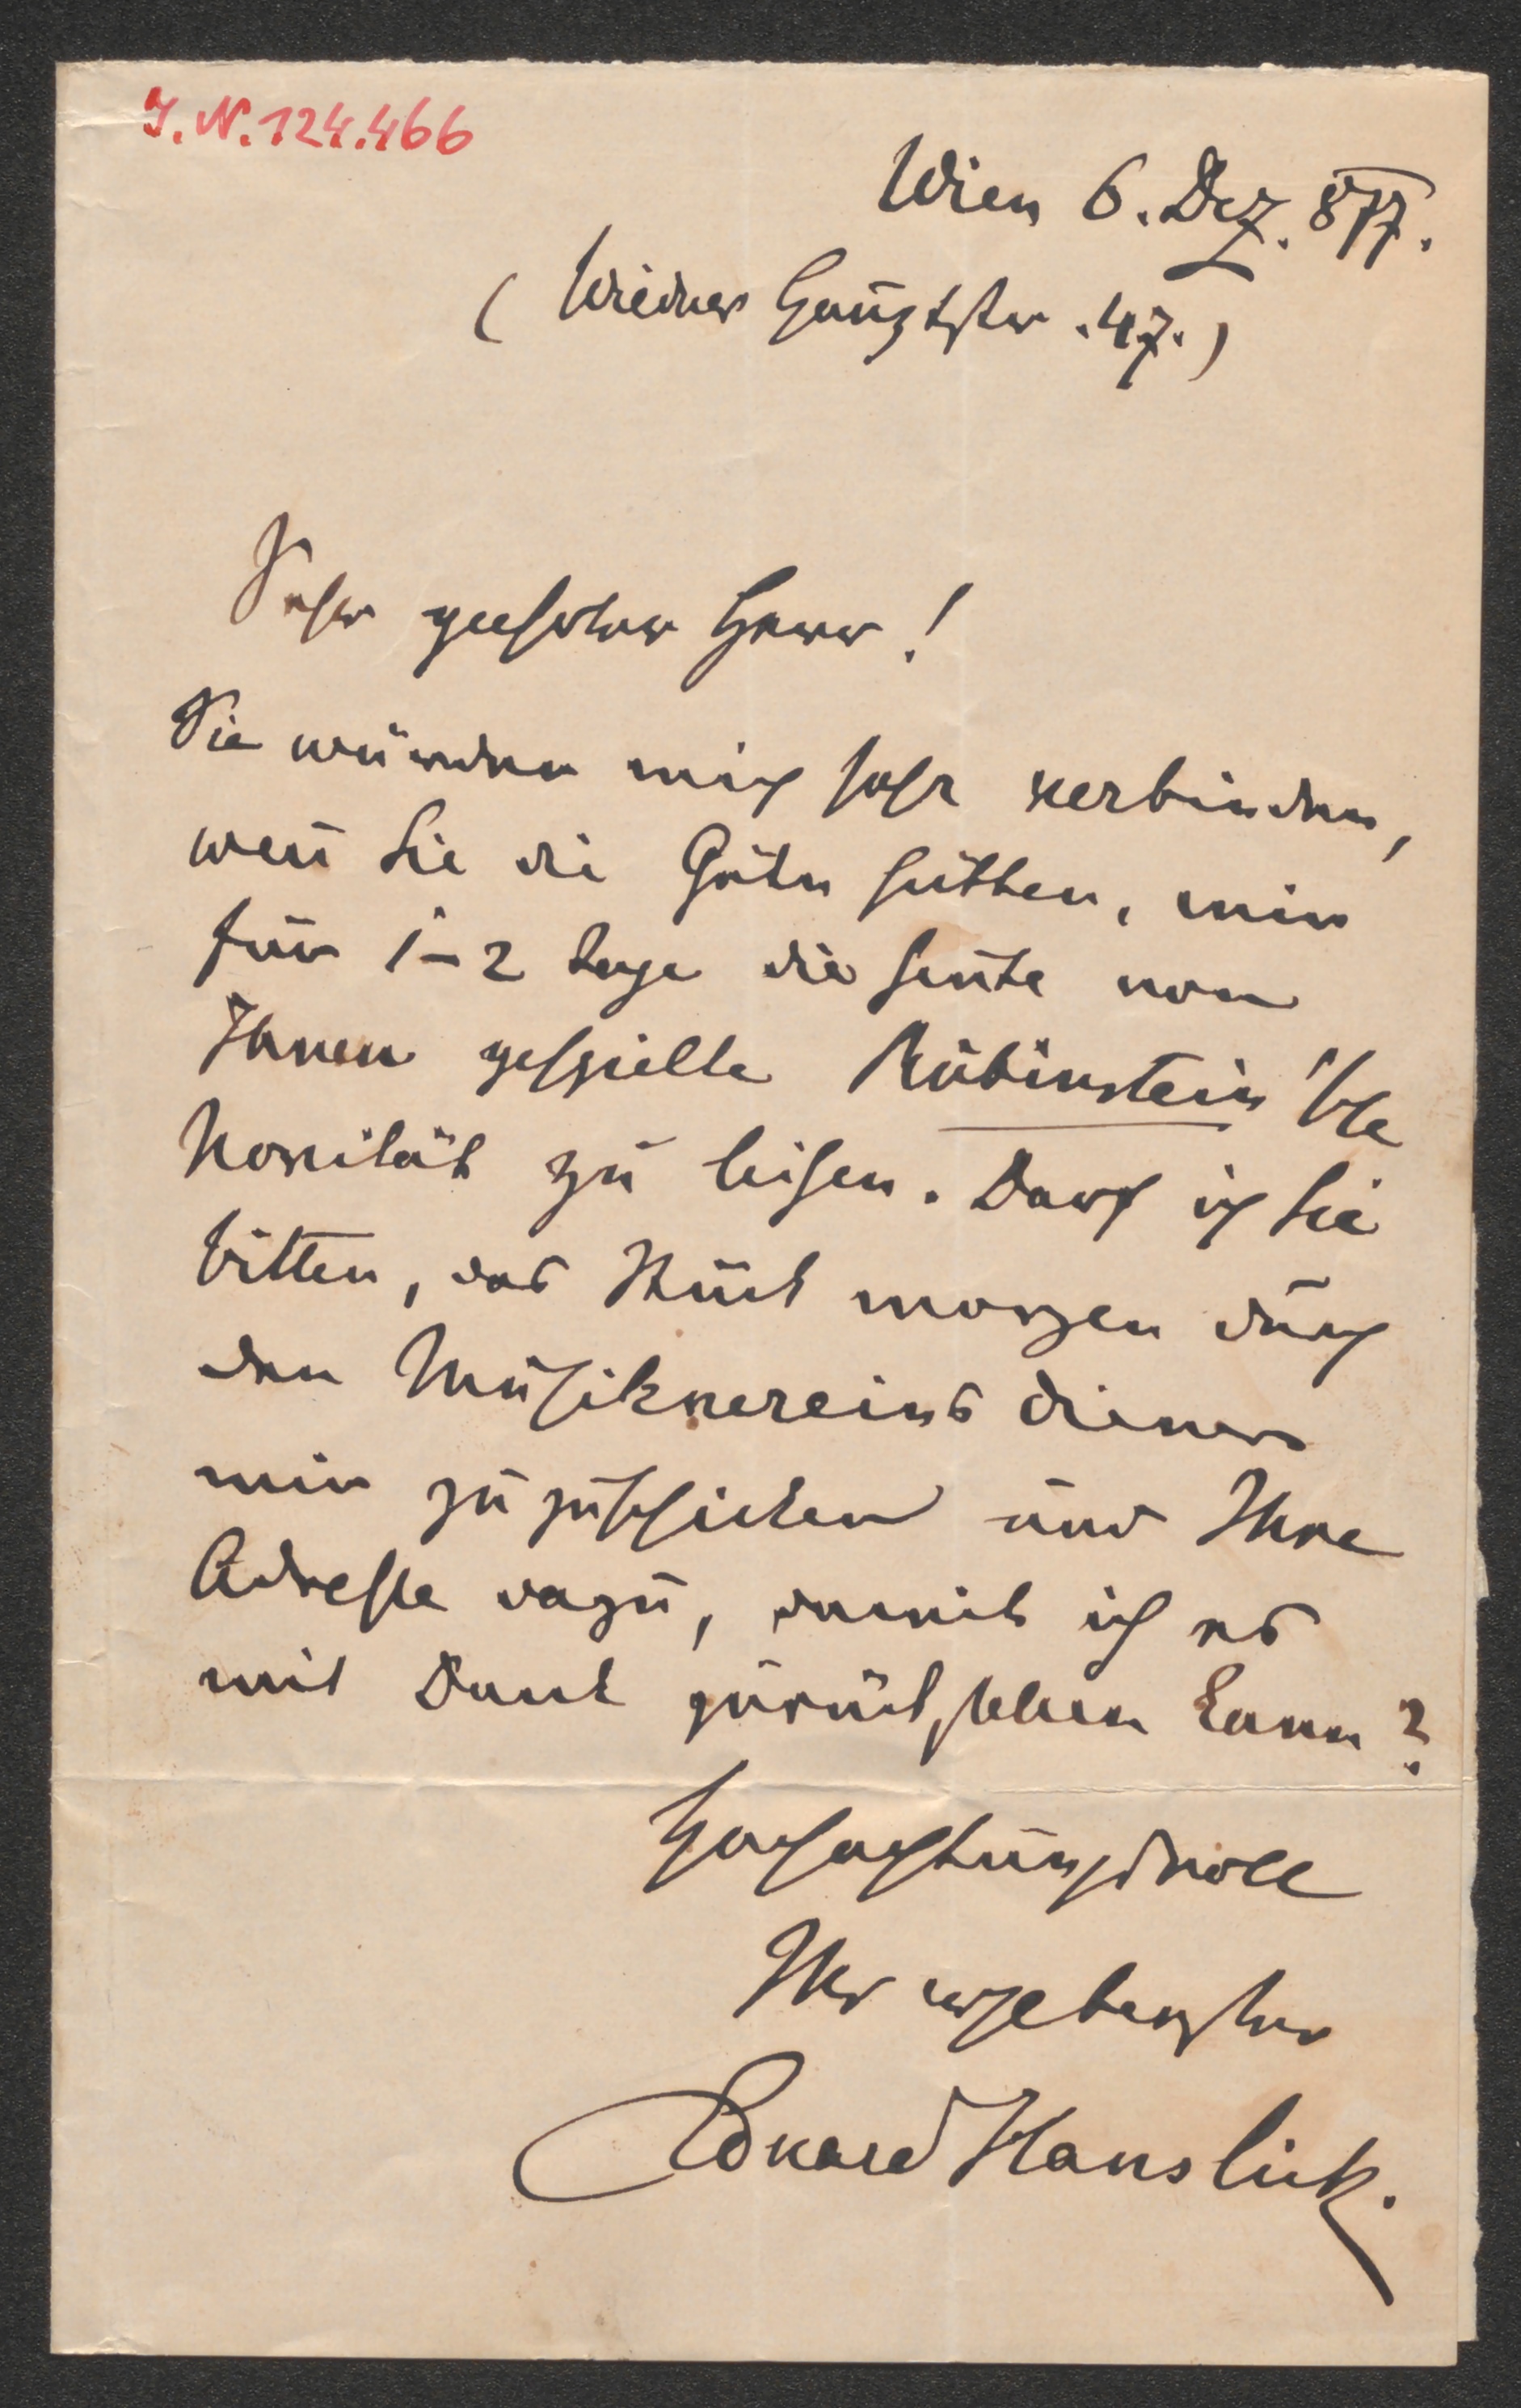 J. N. 124.466
Wien 6. Dez. 877.
(Wiedner Hauptstr. 47.)
Sehr geehrter Herr!
Sie würden mich sehr verbinden,
wen̄ Sie die Güte hätten, mir
für 1-2 Tage die heute von
Ihnen gespielte Rubinstein'sche
Novität zu leihen. Darf ich Sie
bitten, das Stück morgen durch
den Musikvereins diener
mir zuzuschicken und Ihre
Adresse dazu, damit ich es
mit Dank zurückstellen kann?
Hochachtungsvoll
Ihr ergebenster
Eduard Hanslick.